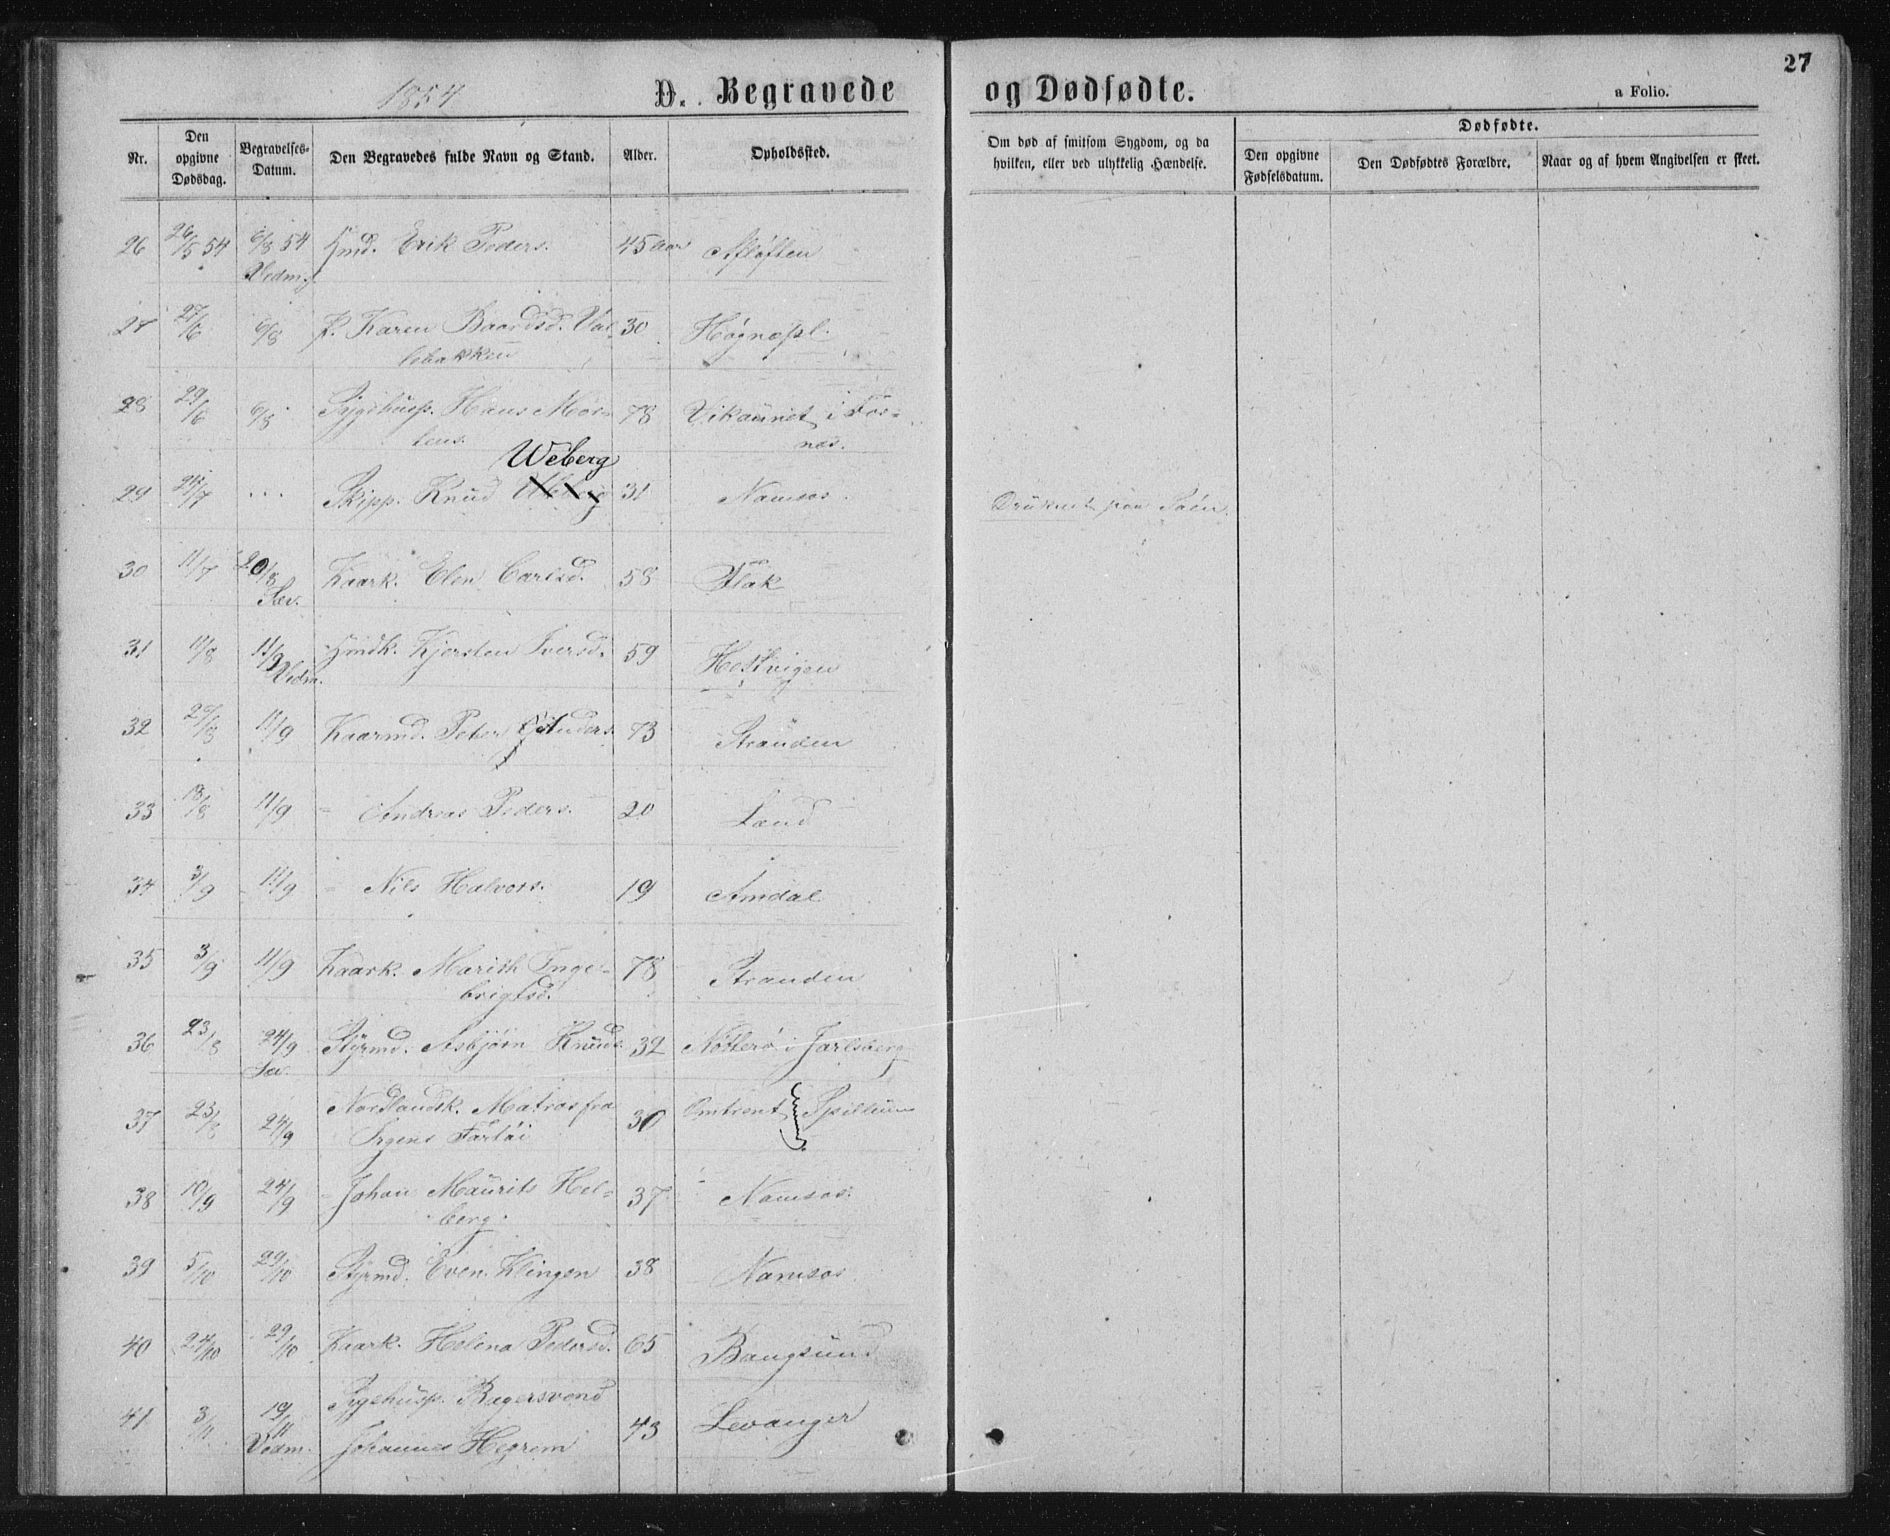 27
1854
D. Begravede og Dødfødte.
a Folio.
Nr.
Den opgivne Dødsdag.
Begravelses-Datum.
Den Begravedes fulde Navn og Stand.
Alder.
Opholdssted.
Om død af smitsom Sygdom, og da hvilken, eller ved ulykkelig Hændelse.
Dødfødte.
Den opgivne Fødselsdatum.
Den Dødfødtes Forældre.
Naar og af hvem Angivelsen er skeet.
26 26/5 54 6/8 54 Hmd. Erik Peders. 45 aar Afløften
Vedm.
27 27/6 6/8 p. Karen Baardsd. Val 30 Høgnespl.
lebakken
28 29/6 6/8 Sygehusp. Hans Mor- 78 Vikaunet i Fos-
tens. nes.
Weberg
29 24/7 ... Skipp. Knud 31 Namsos. Druknet paa Søen.
30 11/7 20/8 Kaark. Elen Carlsd. 58 Flak
Sæv.
31 11/8 11/9 Hmdk. Kjersten Iversd. 59 Hestvigen
Vedm.
32 29/8 11/9 Kaarmd. Peter Anders. 73 Stranden
33 18/8 11/9 " Andreas Peders. 20 Land
34 3/9 11/9 " Nils Halvors. 19 Amdal
35 3/9 11/9 Kaark. Marith Inge- 78 Stranden
brigtsd.
36 23/8 24/9 Styrmd. Asbjørn Knuds. 32 Nøtterø i Jarlsberg
Sæv.
37 23/8 24/9 Nordlandsk. Matros fra 30 Omtrent Spillum
Irgens Fartøi
38 10/9 24/9 Johan Maurits Hel- 37 Namsos.
berg.
39 5/10 29/10 Styrmd. Even Klingen 38 Namsos
40 24/10 29/10 Kaark. Helena Pedersd. 65 Bangsund
41 3/11 19/11 Sygehusp. Bagersvend 43 Levanger
Vedm. Johannes Hegrem